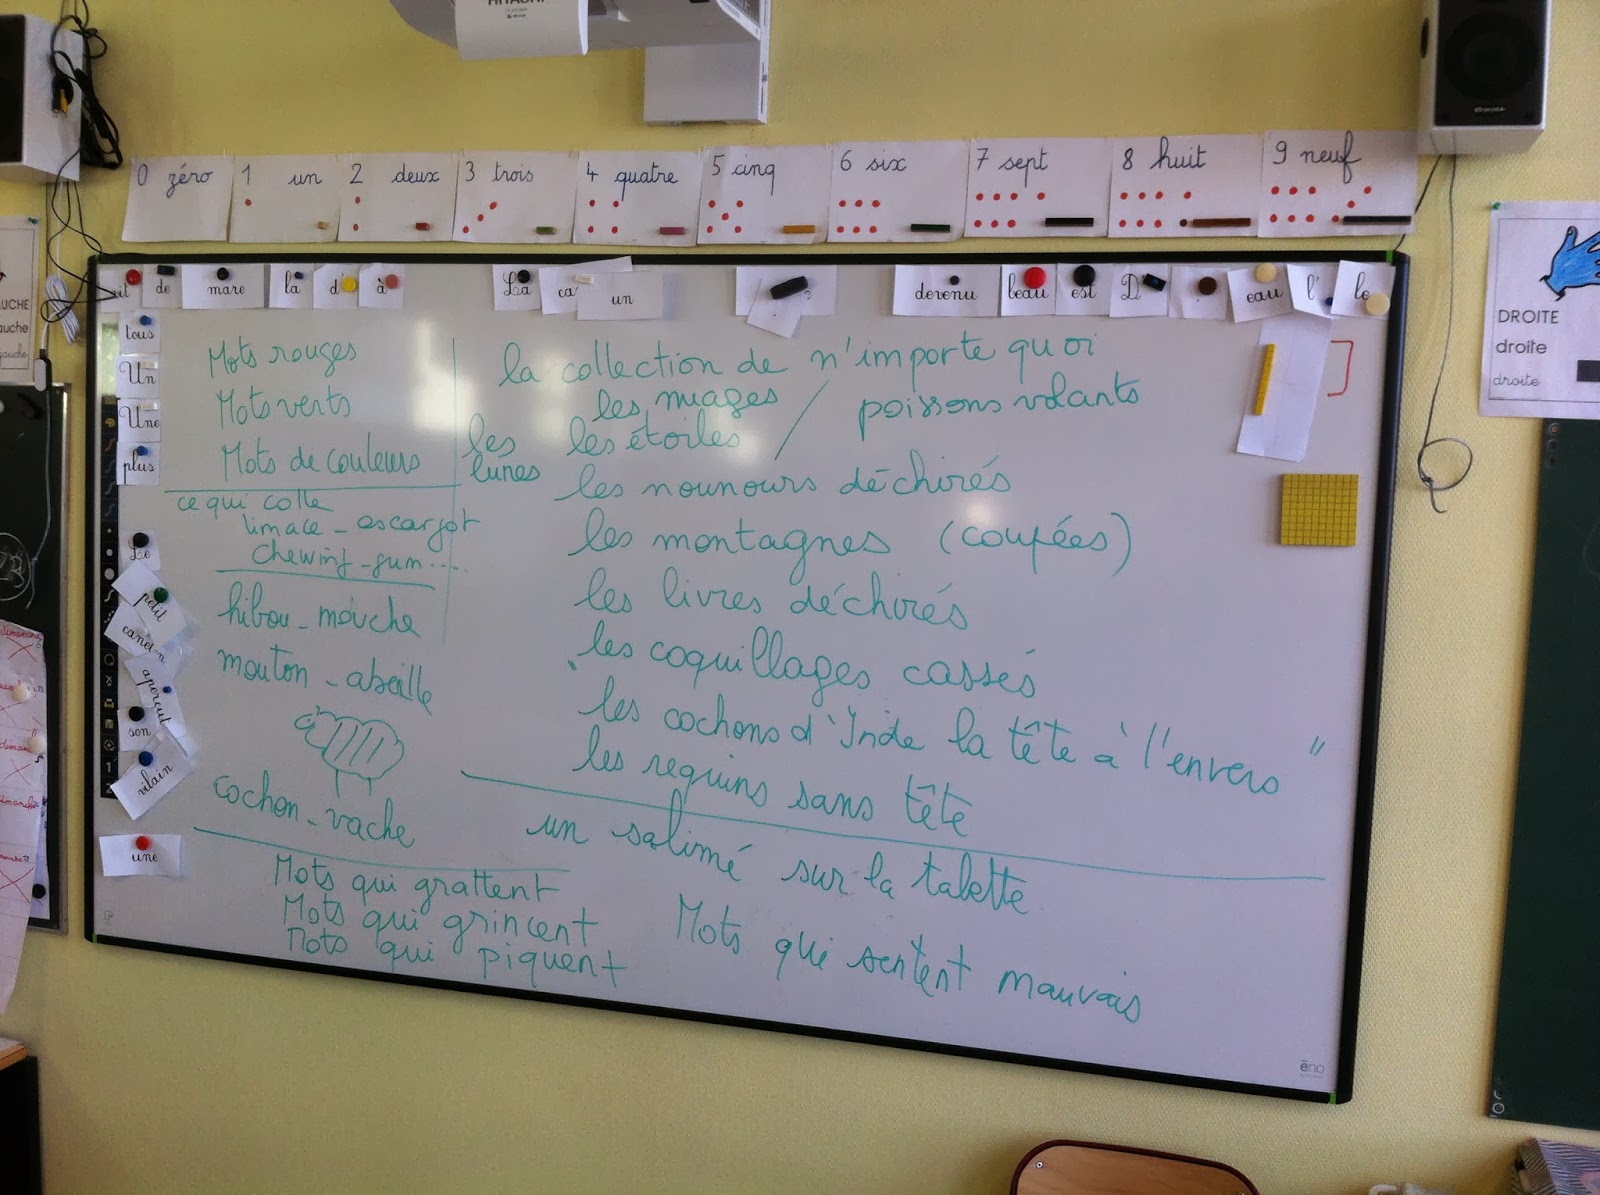 HITACHI
0 zéro
1 un
2 deux
3 trois
4 quatre
5 cinq
6 six
7 sept
8 huit
9 neuf
de
mare
la
d
à
La
ca
un
devenu
beau
est
D
.
eau
l'
le
tous
Un
Une
plus
Le
petit
aperçut
son
vilain
une
Mots rouges
Mots verts
Mots de couleurs
ce qui colle
limace - escargot
chewing-gum....
hibou - mouche
mouton - abeille
cochon - vache
Mots qui grattent
Mots qui grincent
Mots qui piquent
la collection de n'importe quoi
les nuages
poissons volants
les étoiles
les lunes
les nounours déchirés
les montagnes (coupées)
les livres déchirés
"les coquillages cassés
les cochons d'Inde la tête à l'envers"
les requins sans tête
un salimé sur la talette
Mots qui sentent mauvais
DROITE
droite
droite
AUCHE
auche
gauche
ēno